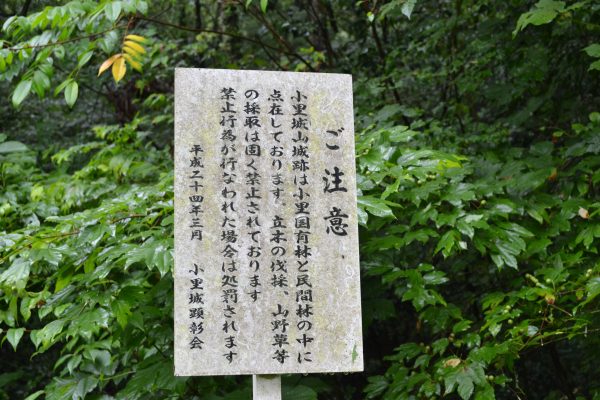 ご注意
小里城山城跡は小里国有林と民間林の中に
点在しております。立木の伐採、山野草等
の採取は固く禁止されております
禁止行為が行なわれた場合は処罰されます
平成二十四年三月　小里城顕彰会